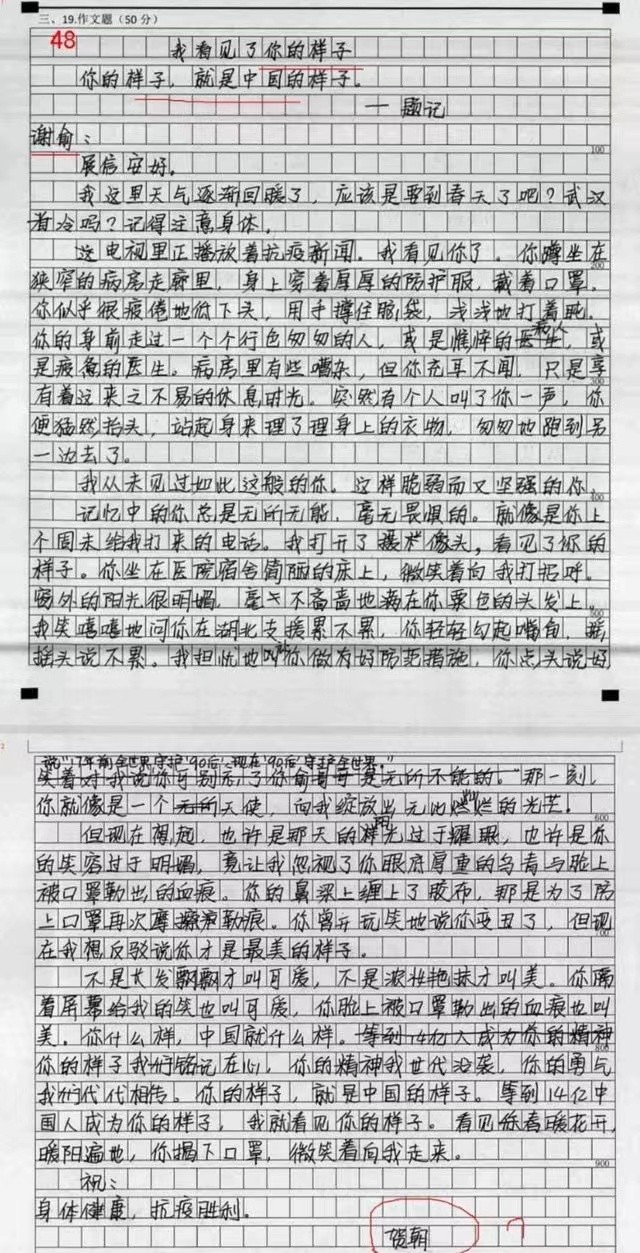 三、19.作文题（50 分）
48
我看见了你的样子
你的样子，就是中国的样子。
—题记
谢俞：
100
展信安好。
我这里天气逐渐回暖了，应该是要到春天了吧？武汉
省冷吗？记得注意身体。
这电视里正播放着抗疫新闻。我看见你了。你蹲坐在
200
狭窄的病房走廊里，身上穿着厚厚的防护服，戴着口罩。
你似乎很疲倦地低下头，用手撑住脑袋，浅浅地打着盹。
你的身前走过一个个行色匆匆的人，或是憔悴的病人，或
是疲惫的医生。病房里有些嘈杂，但你充耳不闻，只是享
300
有着这来之不易的休息时光。突然有个人叫了你一声，你
便猛然抬头，站起身来理了理身上的衣物，匆匆地跑到另
一边去了。
我从未见过如此这般的你。这样脆弱而又坚强的你。
400
记忆中的你总是无所无能，毫无畏惧的。就像是你上
个周末给我打来的电话。我打开了摄像头，看见了你的
样子。你坐在医院宿舍简陋的床上，微笑着向我打招呼。
窗外的阳光很明媚，毫不吝啬地洒在你栗色的头发上。
500
我笑嘻嘻地问你在湖北支援累不累，你轻轻勾起嘴角，摇
摇头说不累。我担忧地叫你做有好防范措施，你点头说好
说"17年前全世界守护'90后'，现在'90后'守护全世界。"
笑着对我说你可别忘了你俞哥哥是无所不能的。"那一刻，
你就像是一个天使，向我绽放出无比灿烂的光芒。
600
但现在想起，也许是那天的阳光过于耀眼，也许是你
的笑容过于明媚，竟让我忽视了你眼底厚重的乌青与脸上
被口罩勒出的血痕。你的鼻梁上缠上了胶布，那是为了防
上口罩再次摩擦勒痕。你曾开玩笑地说你变丑了，但现
700
在我想反驳说你才是最美的样子。
不是长发飘飘才叫可爱，不是浓妆艳抹才叫美。你隔
着屏幕给我的笑也叫可爱，你脸上被口罩勒出的血痕也叫
美。你什么样，中国就什么样。等到14亿人成为你的精神
800
你的样子我们铭记在心，你的精神我世代沿袭，你的勇气
我们代代相传。你的样子，就是中国的样子。等到14亿中
国人成为你的样子，我就看见你的样子。看见你春暖花开，
暖阳遍地，你揭下口罩，微笑着向我走来。
900
祝：
身体健康，抗疫胜利。
贺朝